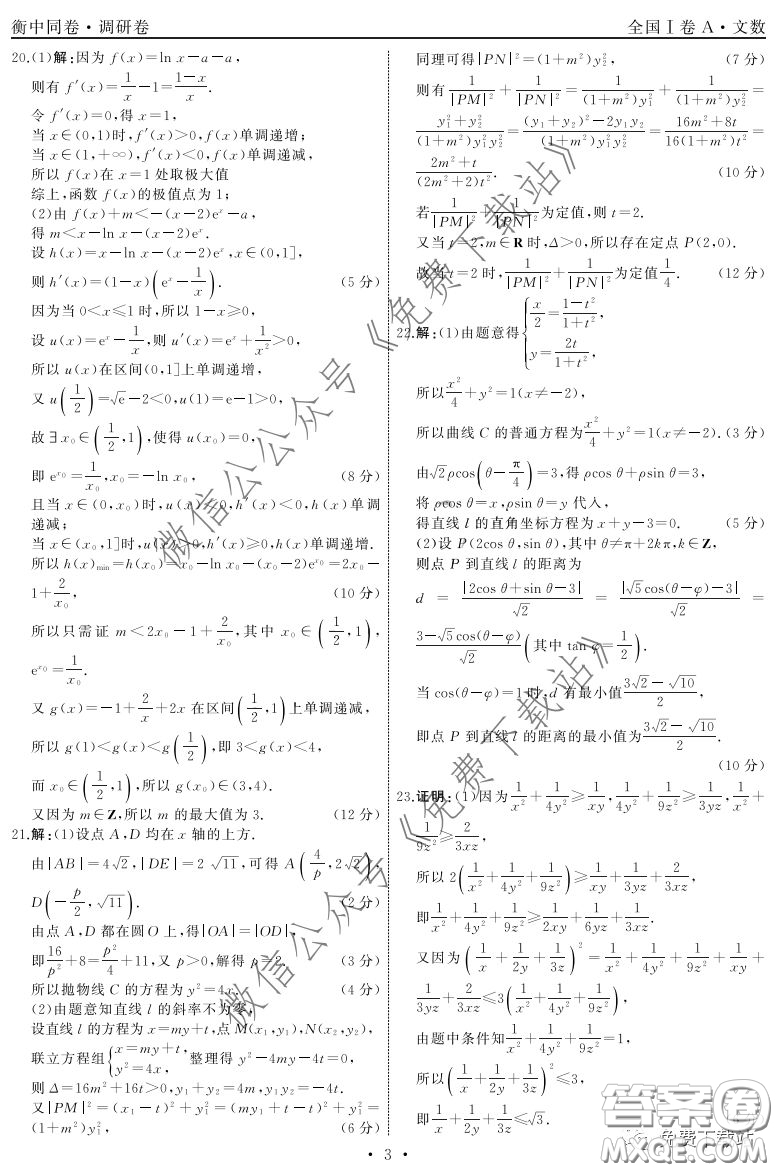 衡中同卷·调研卷
全国Ⅰ卷 A·文数
20.(1)解:因为 f(x)=ln x-a-a,
则有 f′(x)=1/x-1=(1-x)/x.
令 f′(x)=0,得 x=1,
当 x∈(0,1)时,f′(x)>0,f(x)单调递增;
当 x∈(1,+∞),f′(x)<0,f(x)单调递减,
所以 f(x)在 x=1 处取极大值
综上,函数 f(x)的极值点为 1;
(2)由 f(x)+m<-(x-2)eˣ-a,
得 m<x-ln x-(x-2)eˣ.
设 h(x)=x-ln x-(x-2)eˣ,x∈(0,1],
则 h′(x)=(1-x)(eˣ-1/x). (5 分)
因为当 0<x≤1 时,所以 1-x≥0,
设 u(x)=eˣ-1/x,则 u′(x)=eˣ+1/x²>0,
所以 u(x)在区间(0,1]上单调递增,
又 u(1/2)=√e-2<0,u(1)=e-1>0,
故∃x₀∈(1/2,1),使得 u(x₀)=0,
即 e^(x₀)=1/x₀,x₀=-ln x₀, (8 分)
且当 x∈(0,x₀)时,u(x)<0,h′(x)<0,h(x)单调
递减;
当 x∈(x₀,1]时,u(x)>0,h′(x)≥0,h(x)单调递增.
所以 h(x)min=h(x₀)=x₀-ln x₀-(x₀-2)e^(x₀)=2x₀-
1+2/x₀, (10 分)
所以只需证 m<2x₀-1+2/x₀,其中 x₀∈(1/2,1),
e^(x₀)=1/x₀.
又 g(x)=-1+2/x+2x 在区间(1/2,1)上单调递减,
所以 g(1)<g(x)<g(1/2),即 3<g(x)<4,
而 x₀∈(1/2,1),所以 g(x₀)∈(3,4).
又因为 m∈Z,所以 m 的最大值为 3. (12 分)
21.解:(1)设点 A,D 均在 x 轴的上方.
由|AB|=4√2,|DE|=2√11,可得 A(4/p,2√2),
D(-p/2,√11). (2 分)
由点 A,D 都在圆 O 上,得|OA|=|OD|,
即16/p²+8=p²/4+11,又 p>0,解得 p=2. (3 分)
所以抛物线 C 的方程为 y²=4x. (4 分)
(2)由题意知直线 l 的斜率不为零,
设直线 l 的方程为 x=my+t,点 M(x₁,y₁),N(x₂,y₂),
联立方程组{x=my+t, y²=4x, 整理得 y²-4my-4t=0,
则 Δ=16m²+16t>0,y₁+y₂=4m,y₁y₂=-4t.
又|PM|²=(x₁-t)²+y₁²=(my₁+t-t)²+y₁²=
(1+m²)y₁², (6 分)
同理可得|PN|²=(1+m²)y₂², (7 分)
则有 1/|PM|²+1/|PN|²=1/((1+m²)y₁²)+1/((1+m²)y₂²)=
(y₁²+y₂²)/((1+m²)y₁²y₂²)=((y₁+y₂)²-2y₁y₂)/((1+m²)y₁²y₂²)=(16m²+8t)/(16(1+m²)t²)=
(2m²+t)/((2m²+2)t²). (10 分)
若1/|PM|²+1/|PN|²为定值,则 t=2.
又当 t=2,m∈R 时,Δ>0,所以存在定点 P(2,0).
故当 t=2 时,1/|PM|²+1/|PN|²为定值1/4. (12 分)
22.解:(1)由题意得{x/2=(1-t²)/(1+t²), y=2t/(1+t²),
所以x²/4+y²=1(x≠-2),
所以曲线 C 的普通方程为x²/4+y²=1(x≠-2).(3 分)
由√2ρcos(θ-π/4)=3,得 ρcos θ+ρsin θ=3,
将 ρcos θ=x,ρsin θ=y 代入,
得直线 l 的直角坐标方程为 x+y-3=0. (5 分)
(2)设 P(2cos θ,sin θ),其中 θ≠π+2kπ,k∈Z,
则点 P 到直线 l 的距离为
d = |2cos θ+sin θ-3|/√2 = |√5cos(θ-φ)-3|/√2 =
(3-√5cos(θ-φ))/√2(其中 tan φ=1/2).
当 cos(θ-φ)=1 时,d 有最小值(3√2-√10)/2,
即点 P 到直线 l 的距离的最小值为(3√2-√10)/2.
(10 分)
23.证明:(1)因为1/x²+1/4y²≥1/xy,1/4y²+1/9z²≥1/3yz,1/x²+
1/9z²≥2/3xz,
所以 2(1/x²+1/4y²+1/9z²)≥1/xy+1/3yz+2/3xz,
即1/x²+1/4y²+1/9z²≥1/2xy+1/6yz+1/3xz.
又因为(1/x+1/2y+1/3z)²=1/x²+1/4y²+1/9z²+1/xy+
1/3yz+2/3xz≤3(1/x²+1/4y²+1/9z²),
由题中条件知1/x²+1/4y²+1/9z²=1,
所以(1/x+1/2y+1/3z)²≤3,
即1/x+1/2y+1/3z≤√3.
· 3 ·
微信公众号《免费下载站》
微信公众号《免费下载站》
答案圈
免费下载站